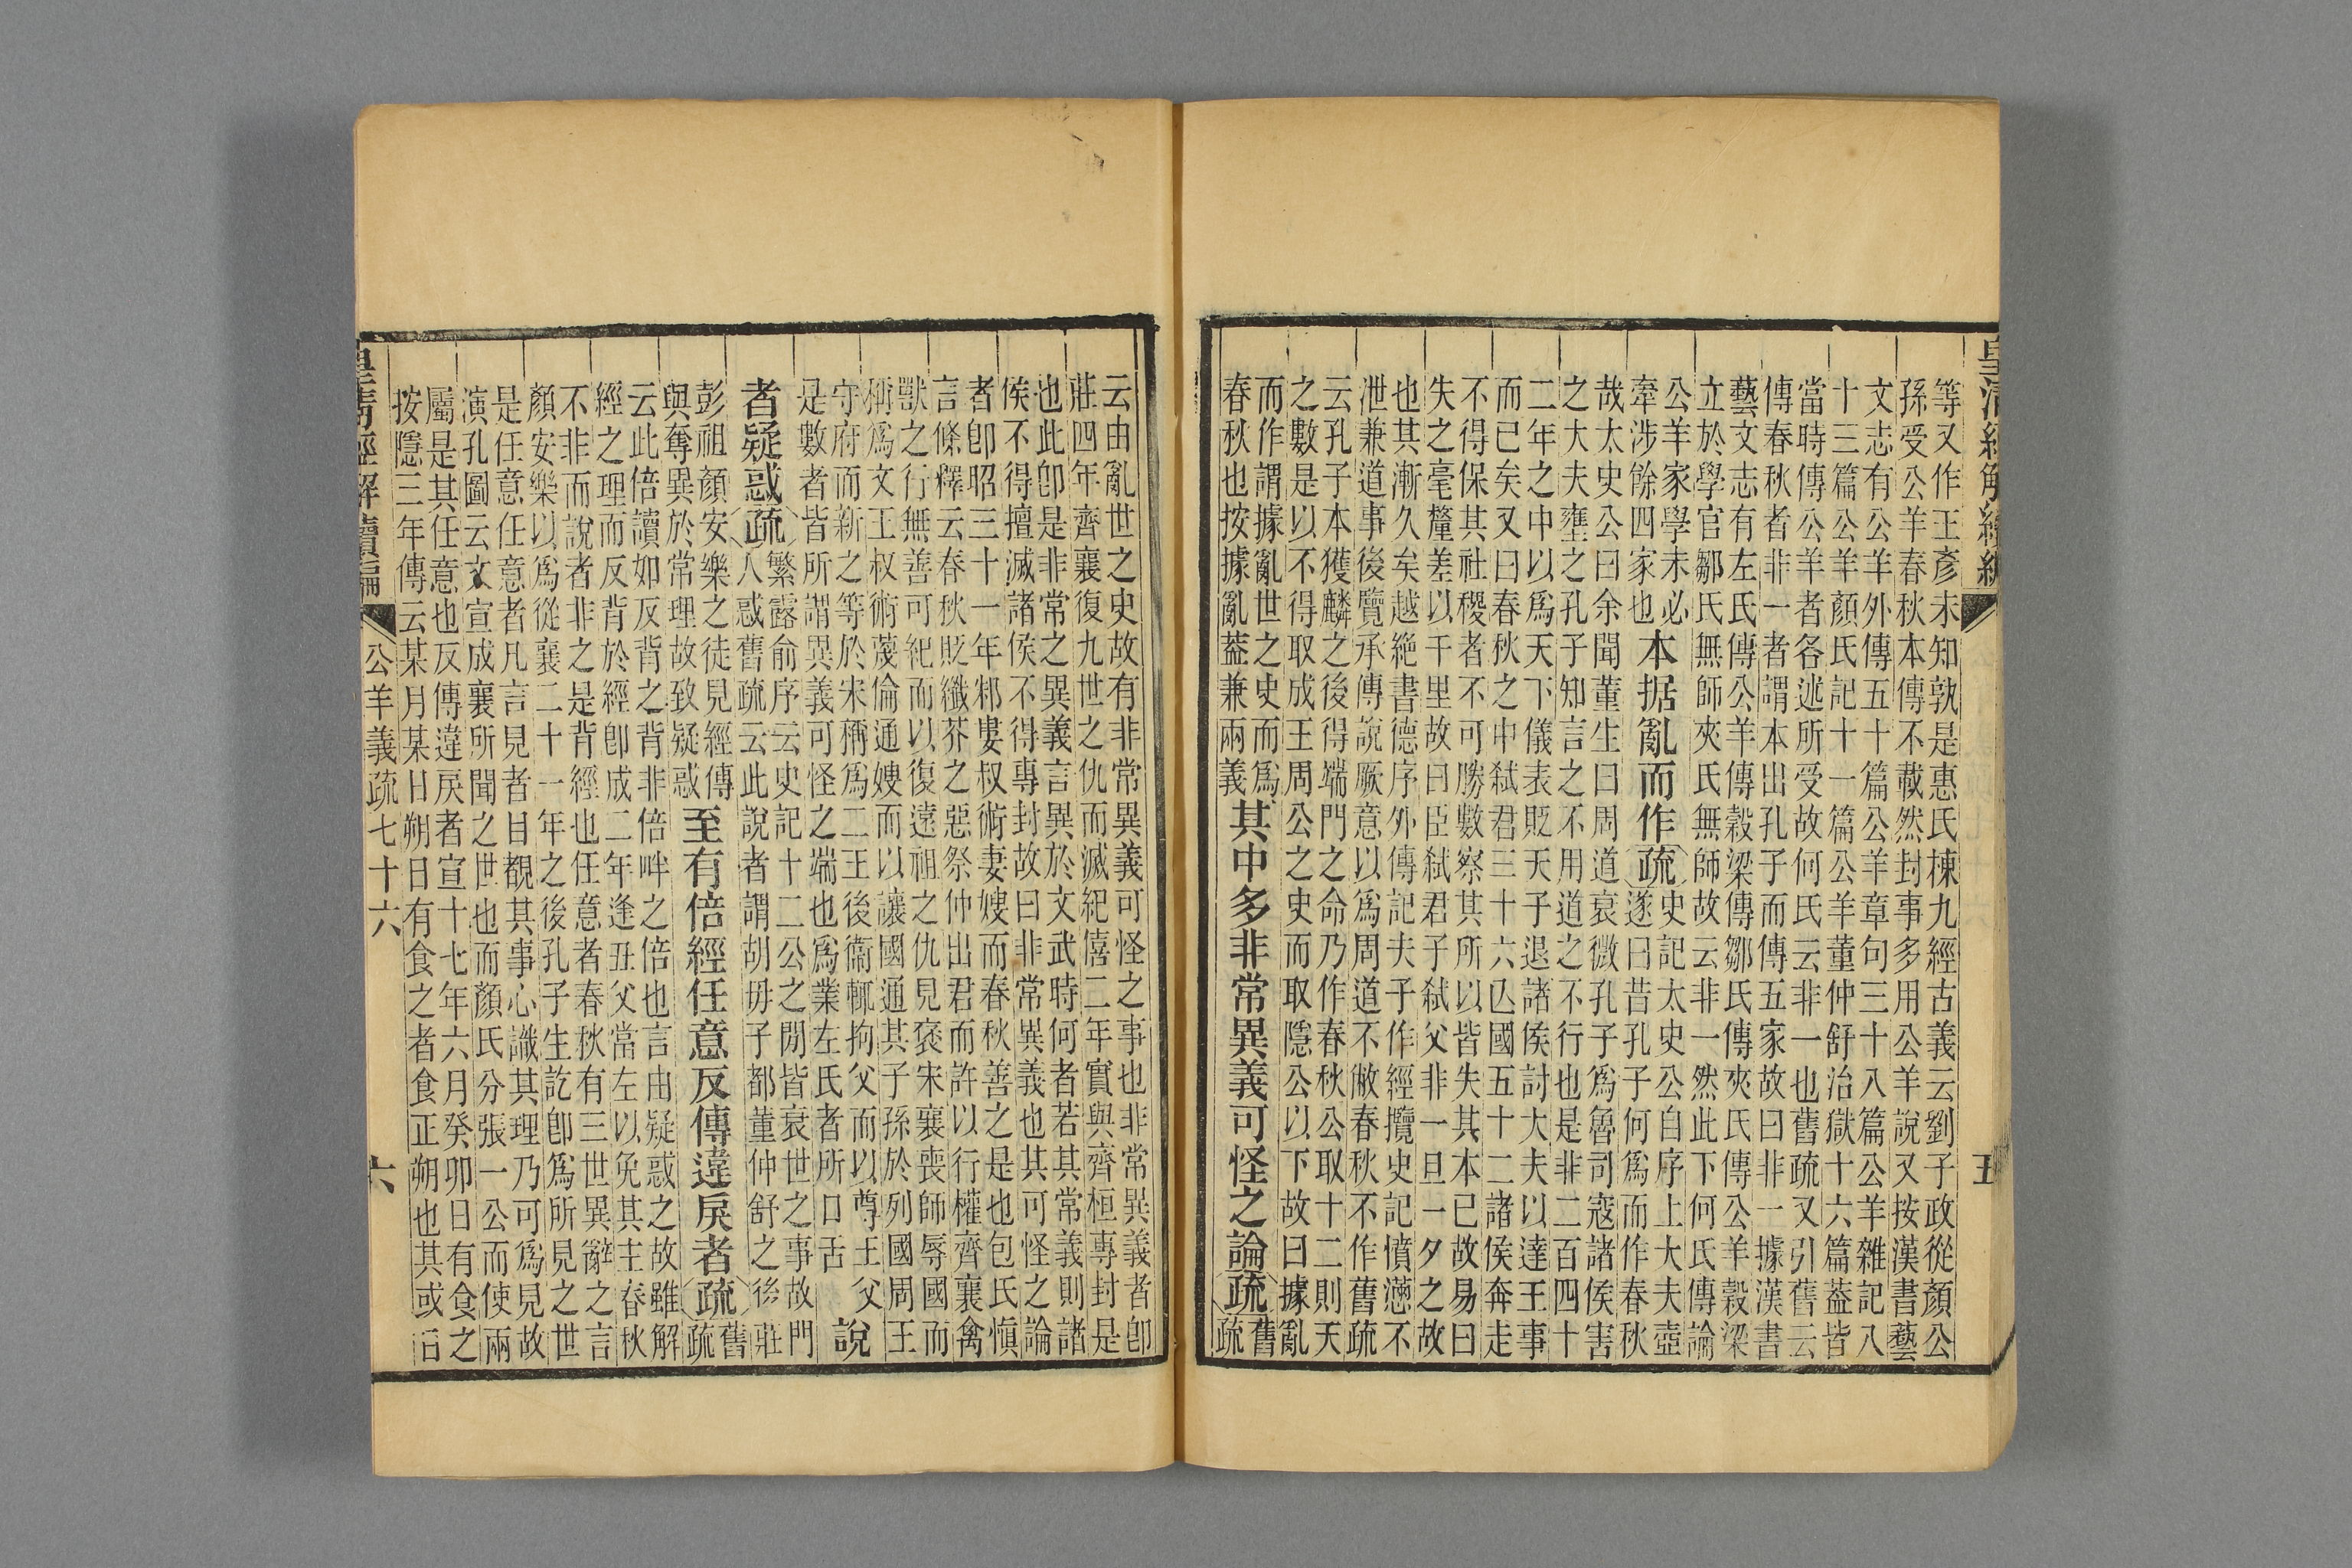 皇清經解續編
五
等又作王彥未知孰是惠氏棟九經古義云劉子政從顏公
孫受公羊春秋本傳不載然封事多用公羊說又按漢書藝
文志有公羊外傳五十篇公羊章句三十八篇公羊雜記八
十三篇公羊顏氏記十一篇公羊董仲舒治獄十六篇葢皆
當時傳公羊者各述所受故何氏云非一也舊疏又引舊云
傳春秋者非一者謂本出孔子而傳五家故曰非一據漢書
藝文志有左氏傳公羊傳穀梁傳鄒氏傳夾氏傳公羊穀梁
立於學官鄒氏無師夾氏無師故云非一然此下何氏傳論
公羊家學未必
牽涉餘四家也
本据亂而作疏
史記太史公自序上大夫壺
遂曰昔孔子何爲而作春秋
哉太史公曰余聞董生曰周道衰微孔子爲魯司寇諸侯害
之大夫壅之孔子知言之不用道之不行也是非二百四十
二年之中以爲天下儀表貶天子退諸侯討大夫以達王事
而已矣又曰春秋之中弒君三十六亡國五十二諸侯奔走
不得保其社稷者不可勝數察其所以皆失其本已故易曰
失之毫釐差以千里故曰臣弒君子弒父非一旦一夕之故
也其漸久矣越絶書德序外傳記夫子作經攬史記憤懣不
泄兼道事後覽承傳說厥意以爲周道不敝春秋不作舊疏
云孔子本獲麟之後得端門之命乃作春秋公取十二則天
之數是以不得取成王周公之史而取隱公以下故曰據亂
而作謂據亂世之史而爲
春秋也按據亂葢兼兩義
其中多非常異義可怪之論疏
舊
疏
云由亂世之史故有非常異義可怪之事也非常異義者卽
莊四年齊襄復九世之仇而滅紀僖二年實與齊桓專封是
也此卽是非常之異義言異於文武時何者若其常義則諸
侯不得擅滅諸侯不得專封故曰非常異義也其可怪之論
者卽昭三十一年邾婁叔術妻嫂而春秋善之是也包氏愼
言條釋云春秋貶纖芥之惡祭仲出君而許以行權齊襄禽
獸之行無善可紀而以復遠祖之仇見褒宋襄喪師辱國而
稱爲文王叔術蔑倫通嫂而以讓國通其子孫於列國周王
守府而新之等於宋稱爲二王後衞輒拘父而以尊王父
是數者皆所謂異義可怪之端也爲業左氏者所口舌
說
者疑惑疏
繁露俞序云史記十二公之閒皆衰世之事故門
人惑舊疏云此說者謂胡毋子都董仲舒之後莊
彭祖顏安樂之徒見經傳
與奪異於常理故致疑惑
至有倍經任意反傳違戾者疏
舊
疏
云此倍讀如反背之背非倍畔之倍也言由疑惑之故雖解
經之理而反背於經卽成二年逢丑父當左以免其主春秋
不非而說者非之是背經也任意者春秋有三世異辭之言
顏安樂以爲從襄二十一年之後孔子生訖卽爲所見之世
是任意任意者凡言見者目覩其事心識其理乃可爲見故
演孔圖云文宣成襄所聞之世也而顏氏分張一公而使兩
屬是其任意也反傳違戾者宣十七年六月癸卯日有食之
按隱三年傳云某月某日朔日有食之者食正朔也其或日
皇清經解續編
公羊義疏七十六
六